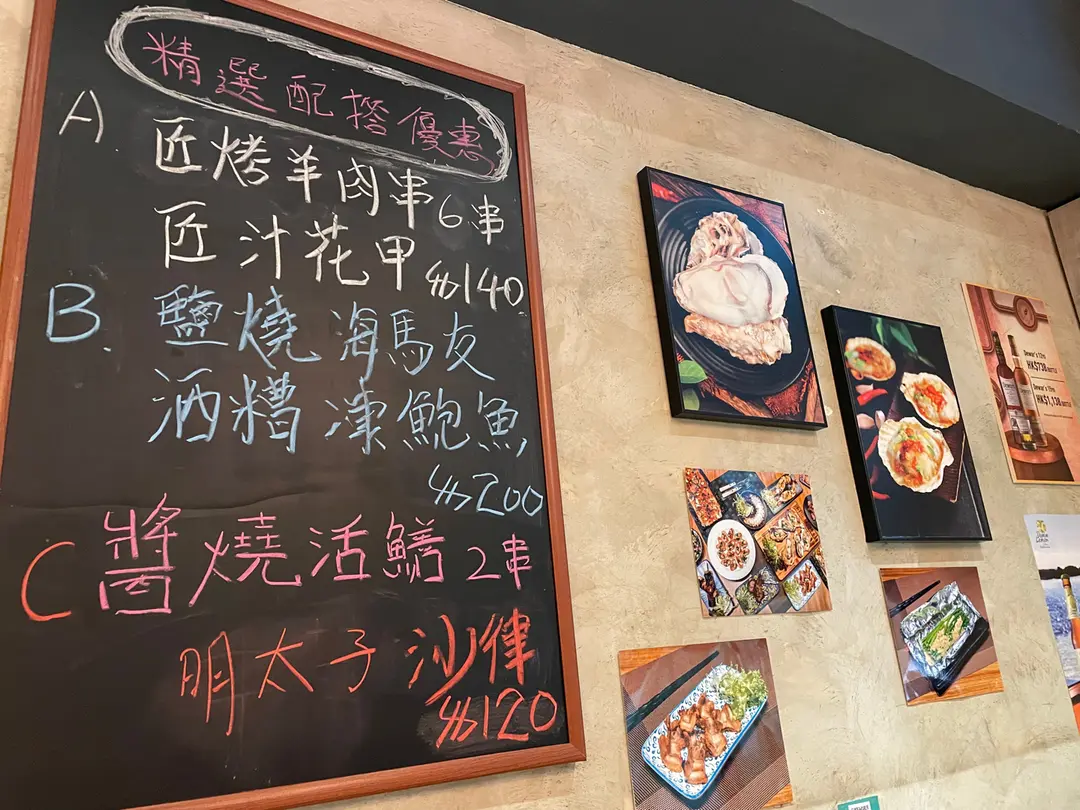 精選配撘優惠
A 匠烤羊肉串6串
匠汁花甲 $140
B. 鹽燒海馬友
酒糟凍鮑魚
$200
C 醬燒活鱔2串
明太子沙律
$120
Dewar's 12YO
HK$738/BOTTLE
Dewar's 15YO
HK$1,138/BOTTLE